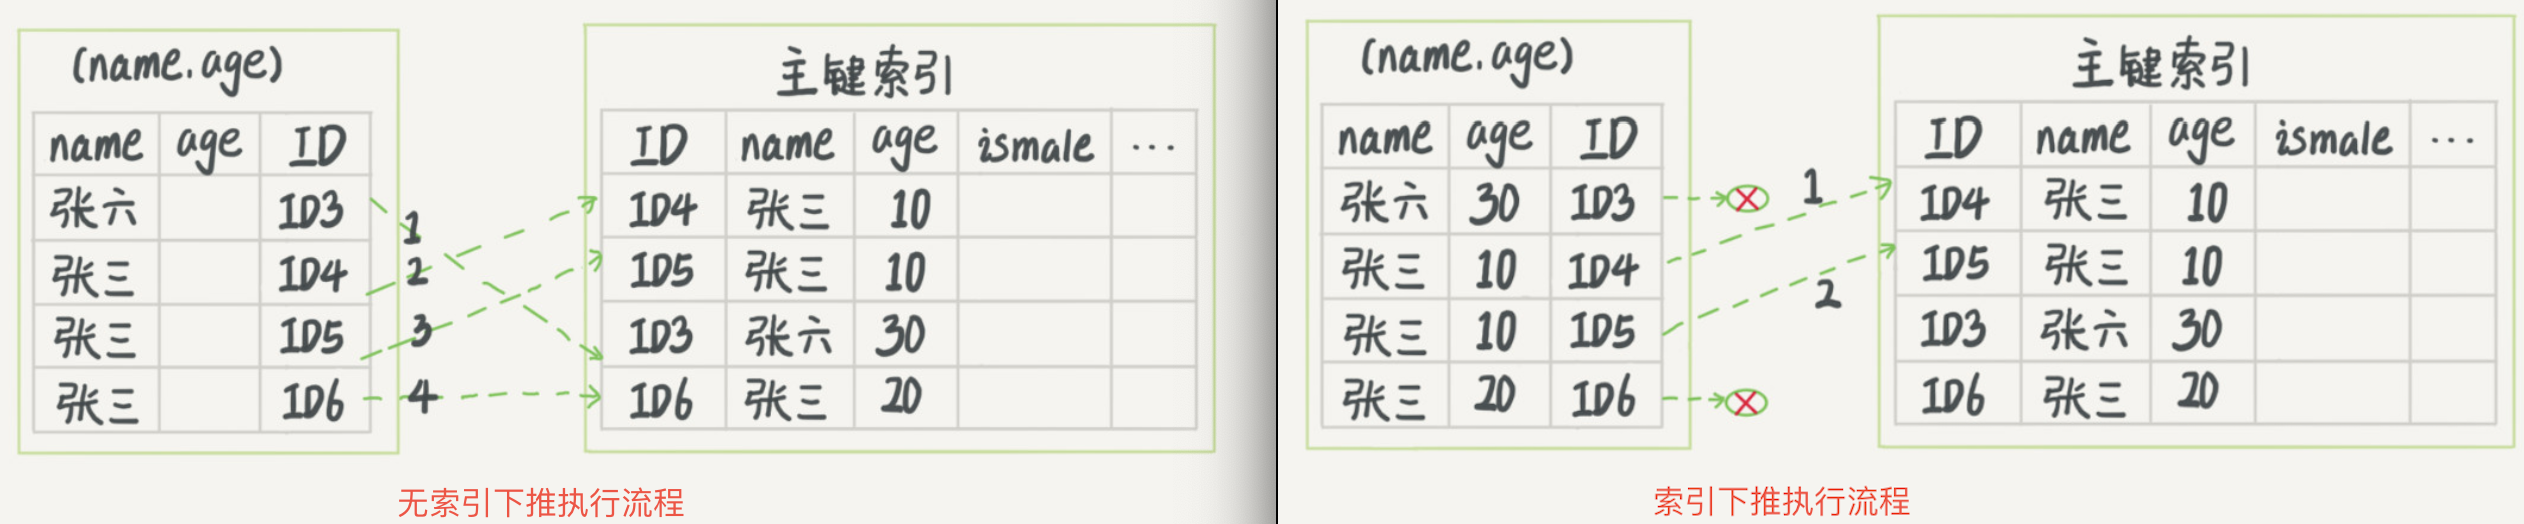 (name.age)
name age ID
张六 ID3
张三 ID4
张三 ID5
张三 ID6
1
2
3
4
主键索引
ID name age ismale ...
ID4 张三 10
ID5 张三 10
ID3 张六 30
ID6 张三 20
无索引下推执行流程
(name.age)
name age ID
张六 30 ID3
张三 10 ID4
张三 10 ID5
张三 20 ID6
1
2
主键索引
ID name age ismale ...
ID4 张三 10
ID5 张三 10
ID3 张六 30
ID6 张三 20
索引下推执行流程